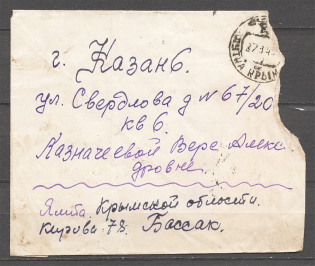 г. Казань.
ул. Свердлова д N 67/20
кв 6.
Казначеевой Вере Алекс.
дровне.
Ялта Крымской области.
Кирова 78. Бассак.